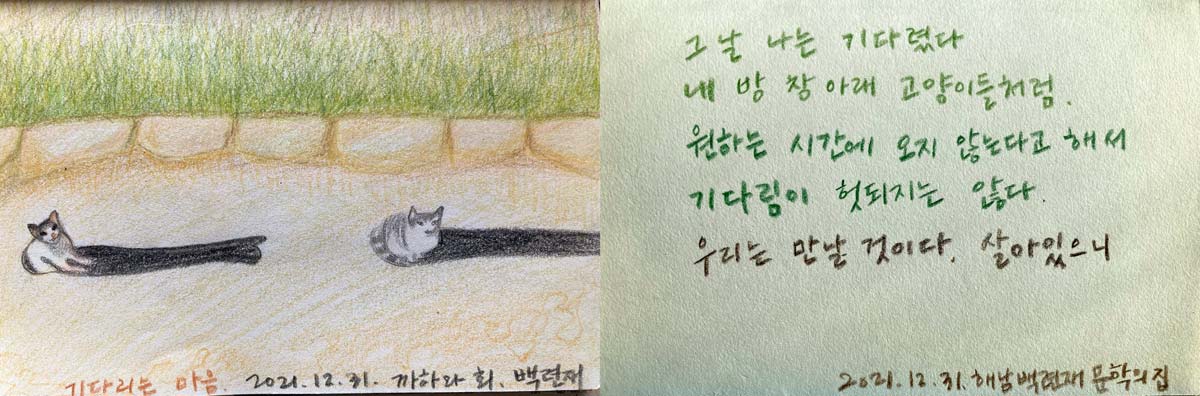 기다리는 마음. 2021.12.31. 까하라 희. 백련재
그날 나는 기다렸다
내 방 창아래 고양이들처럼.
원하는 시간에 오지 않는다고 해서
기다림이 헛되지는 않다.
우리는 만날 것이다. 살아있으니
2021.12.31. 해남백련재 문학의집